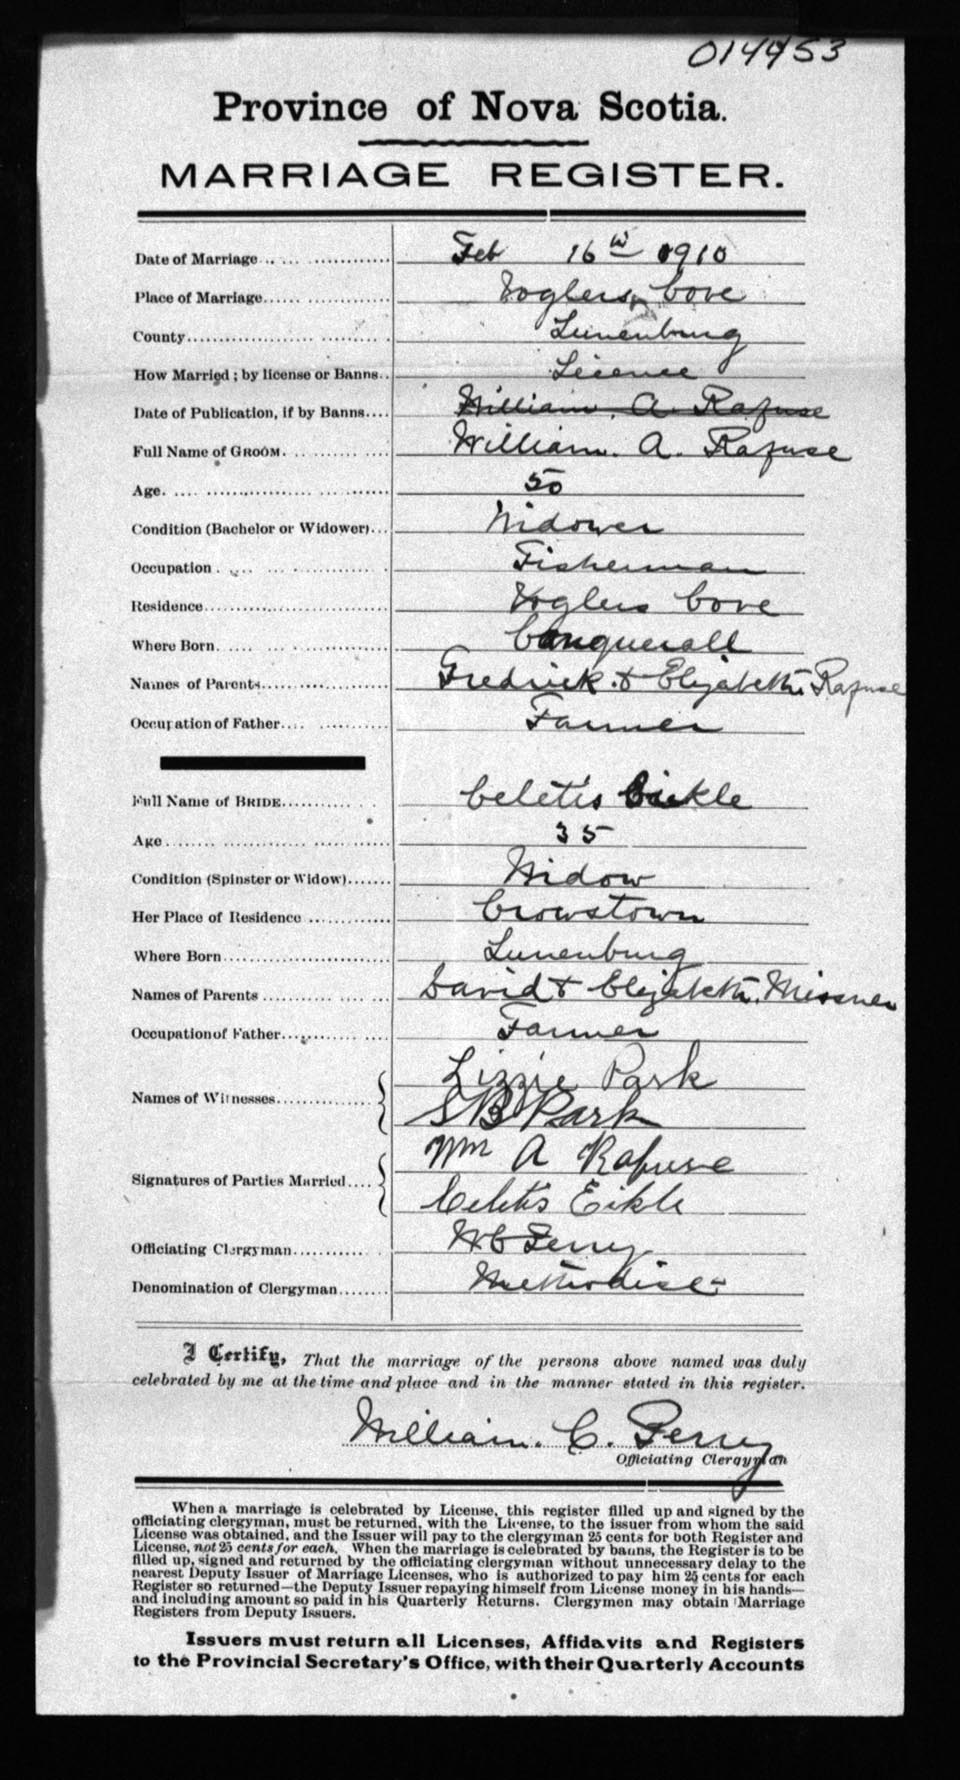 014453
Province of Nova Scotia.
MARRIAGE REGISTER.
Date of Marriage Feb 16th 1910
Place of Marriage Voglers Cove
County Lunenburg
How Married; by license or Banns Licence
Date of Publication, if by Banns William. A. Rafuse
Full Name of GROOM William. A. Rafuse
Age 50
Condition (Bachelor or Widower) Widower
Occupation Fisherman
Residence Voglers Cove
Where Born Conquerall
Names of Parents Fredrick & Elizabeth Rafuse
Occupation of Father Farmer
Full Name of BRIDE Celetis Eikle
Age 35
Condition (Spinster or Widow) Widow
Her Place of Residence Crowstown
Where Born Lunenburg
Names of Parents David & Elizabeth. Missner
Occupation of Father Farmer
Names of Witnesses Lizzie Park
S B Park
Signatures of Parties Married Wm A Rafuse
Celetis Eikle
Officiating Clergyman W C Perry
Denomination of Clergyman Methodist
I Certify, That the marriage of the persons above named was duly
celebrated by me at the time and place and in the manner stated in this register.
William. C. Perry
Officiating Clergyman
When a marriage is celebrated by License, this register filled up and signed by the
officiating clergyman, must be returned, with the License, to the issuer from whom the said
License was obtained, and the Issuer will pay to the clergyman 25 cents for both Register and
License, not 25 cents for each. When the marriage is celebrated by banns, the Register is to be
filled up, signed and returned by the officiating clergyman without unnecessary delay to the
nearest Deputy Issuer of Marriage Licenses, who is authorized to pay him 25 cents for each
Register so returned—the Deputy Issuer repaying himself from License money in his hands—
and including amount so paid in his Quarterly Returns. Clergymen may obtain Marriage
Registers from Deputy Issuers.
Issuers must return all Licenses, Affidavits and Registers
to the Provincial Secretary's Office, with their Quarterly Accounts